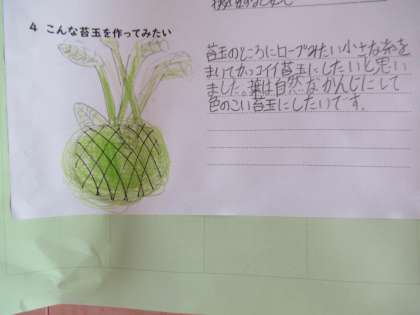 4 こんな苔玉を作ってみたい
苔玉のところにロープみたい小さな糸を
まいてカッコイイ苔玉にしたいと思い
ました。葉は自然なかんじにして
色のこい苔玉にしたいです。